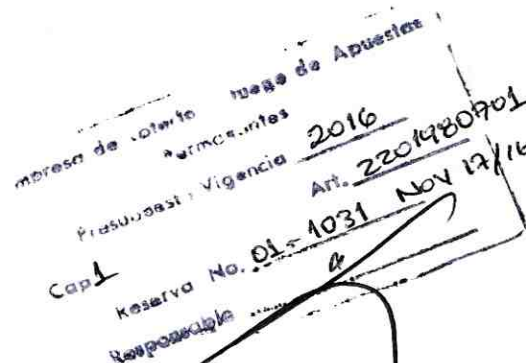 mpresa de Loterta Juego de Apuestas
Permanentes
Presupuest Vigencia 2016
Cap 1 Art. 2201980701
Reserva No. 01-1031 Nov 17/16
Responsable